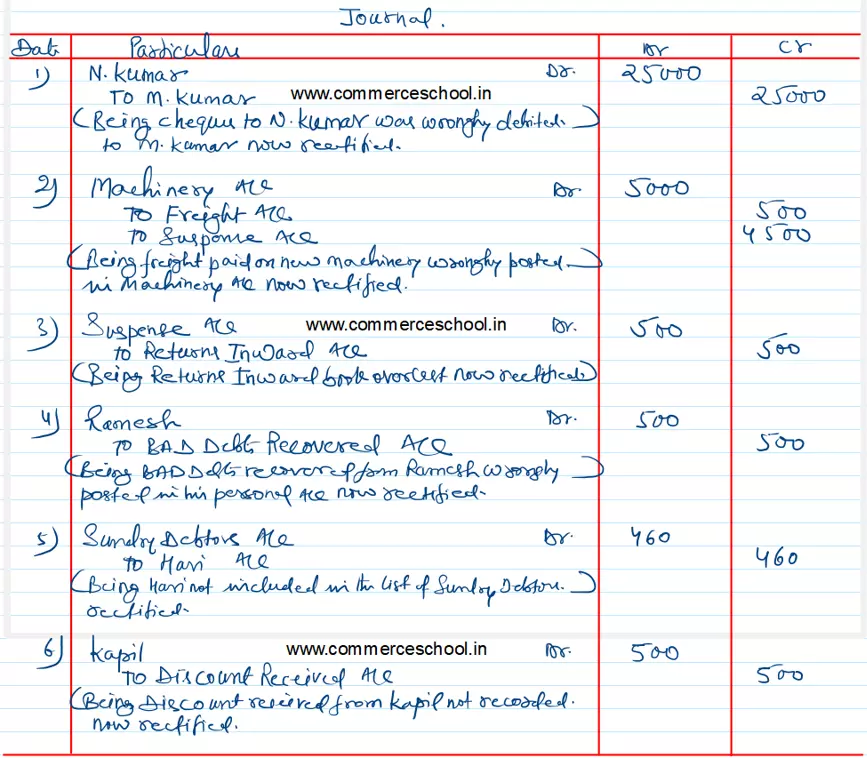 Journal.
Date Particulars Dr Cr
1) N. Kumar Dr. 25000
To M. Kumar www.commerceschool.in 25000
(Being cheque to N. Kumar was wrongly debited
to M. Kumar now rectified.)
2) Machinery A/c Dr. 5000
To Freight A/c 500
To Suspense A/c 4500
(Being freight paid on new machinery wrongly posted
in Machinery A/c now rectified.)
3) Suspense A/c www.commerceschool.in Dr. 500
to Returns Inward A/c 500
(Being Returns Inward book overcast now rectified)
4) Ramesh Dr. 500
To BAD Debts Recovered A/c 500
(Being BAD Debts recovered from Ramesh wrongly
posted in his personal A/c now rectified.)
5) Sundry Debtors A/c Dr. 460
To Hari A/c 460
(Being Hari not included in the list of Sundry Debtors.
rectified.)
6) Kapil www.commerceschool.in Dr. 500
To Discount Received A/c 500
(Being Discount received from Kapil not recorded.
now rectified.